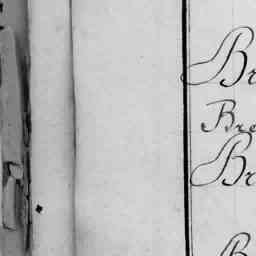 Br
Bre
Br
B